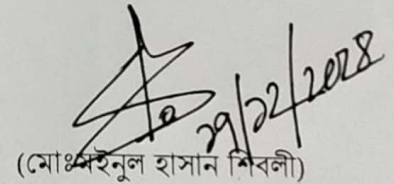 ২৭/১২/২০২৪
(মোঃ মইনুল হাসান শিবলী)